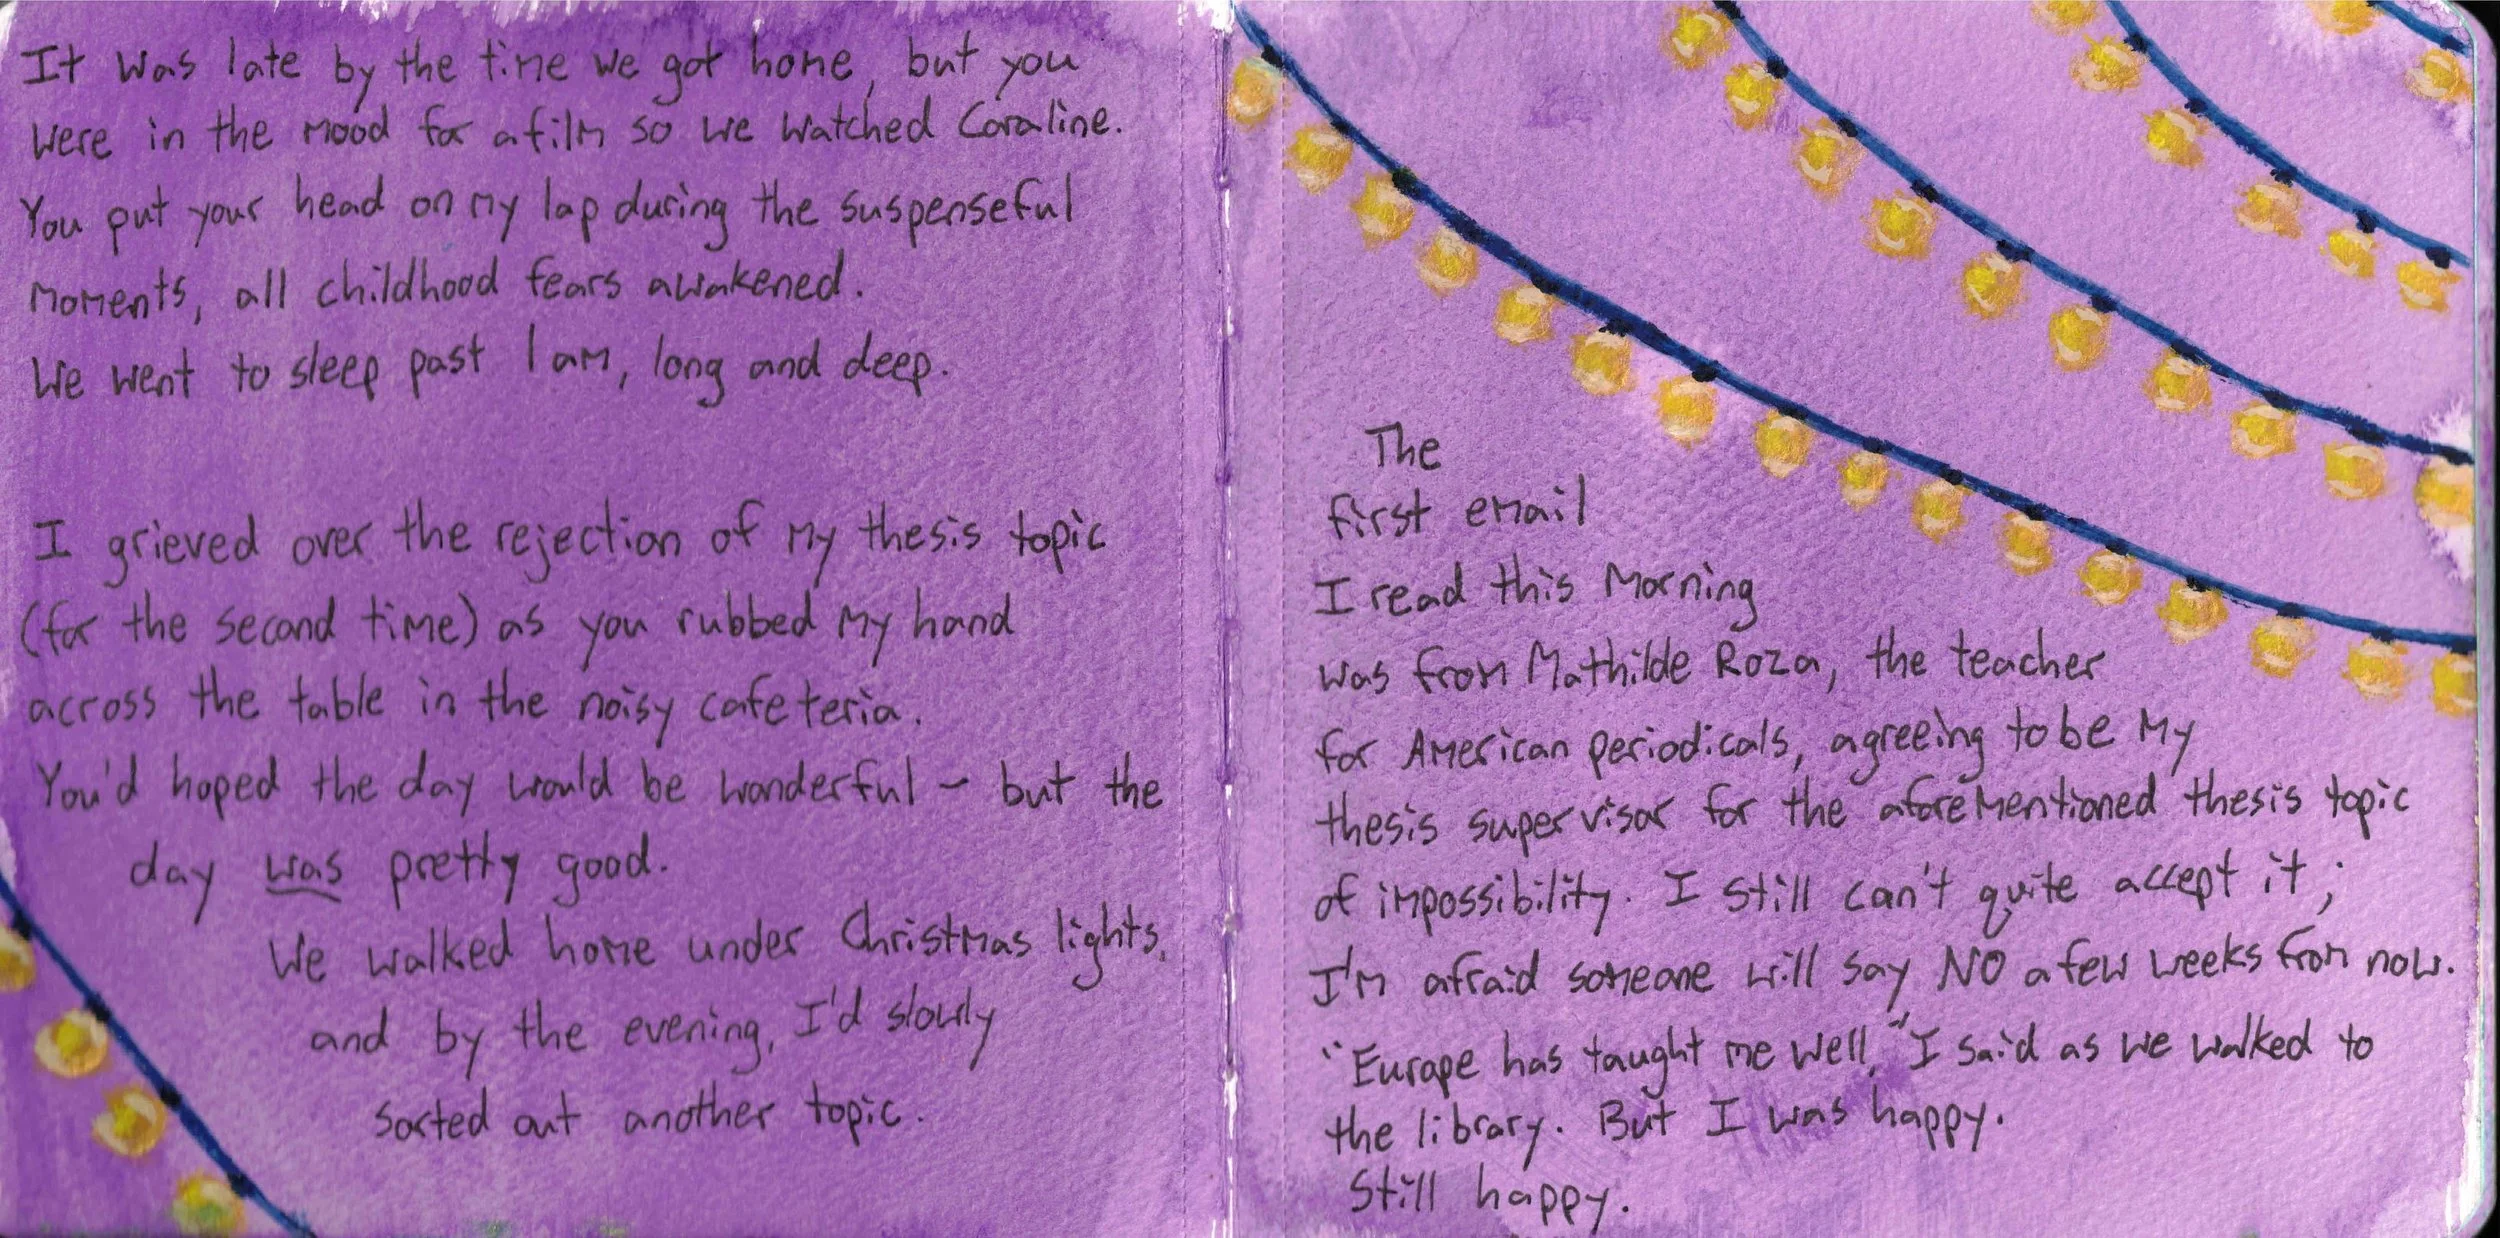 It was late by the time we got home, but you
were in the mood for a film so we watched Coraline.
You put your head on my lap during the suspenseful
moments, all childhood fears awakened.
We went to sleep past 1 am, long and deep.
I grieved over the rejection of my thesis topic
(for the second time) as you rubbed my hand
across the table in the noisy cafeteria.
You'd hoped the day would be wonderful – but the
day was pretty good.
We walked home under Christmas lights,
and by the evening, I'd slowly
sorted out another topic.
The
first email
I read this morning
was from Mathilde Roza, the teacher
for American periodicals, agreeing to be my
thesis supervisor for the aforementioned thesis topic
of impossibility. I still can't quite accept it;
I'm afraid someone will say NO a few weeks from now.
"Europe has taught me well," I said as we walked to
the library. But I was happy.
Still happy.